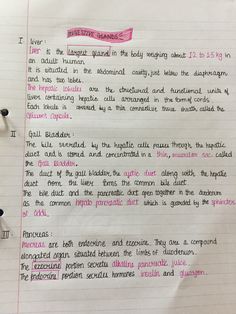 DIGESTIVE GLANDS
I Liver:
Liver is the largest gland in the body weighing about 1.2 to 1.5 kg in
an adult human.
It is situated in the abdominal cavity, just below the diaphragm
and has two lobes.
The hepatic lobules are the structural and functional units of
liver containing hepatic cells arranged in the form of cords.
Each lobule is covered by a thin connective tissue sheath called the
Glisson's capsule.
II Gall Bladder:
The bile secreted by the hepatic cells passes through the hepatic
duct and is stored and concentrated in a thin, muscular sac called
the Gall Bladder.
The duct of the gall bladder, the cystic duct along with the hepatic
duct from the liver forms the common bile duct.
The bile duct and the pancreatic duct open together in the duodenum
as the common hepato pancreatic duct which is guarded by the sphincter
of oddi.
III Pancreas:
Pancreas are both endocrine and exocrine. They are a compound
elongated organ situated between the limbs of duodenum.
The exocrine portion secretes alkaline pancreatic juice.
The endocrine portion secretes hormones insulin and glucagon.